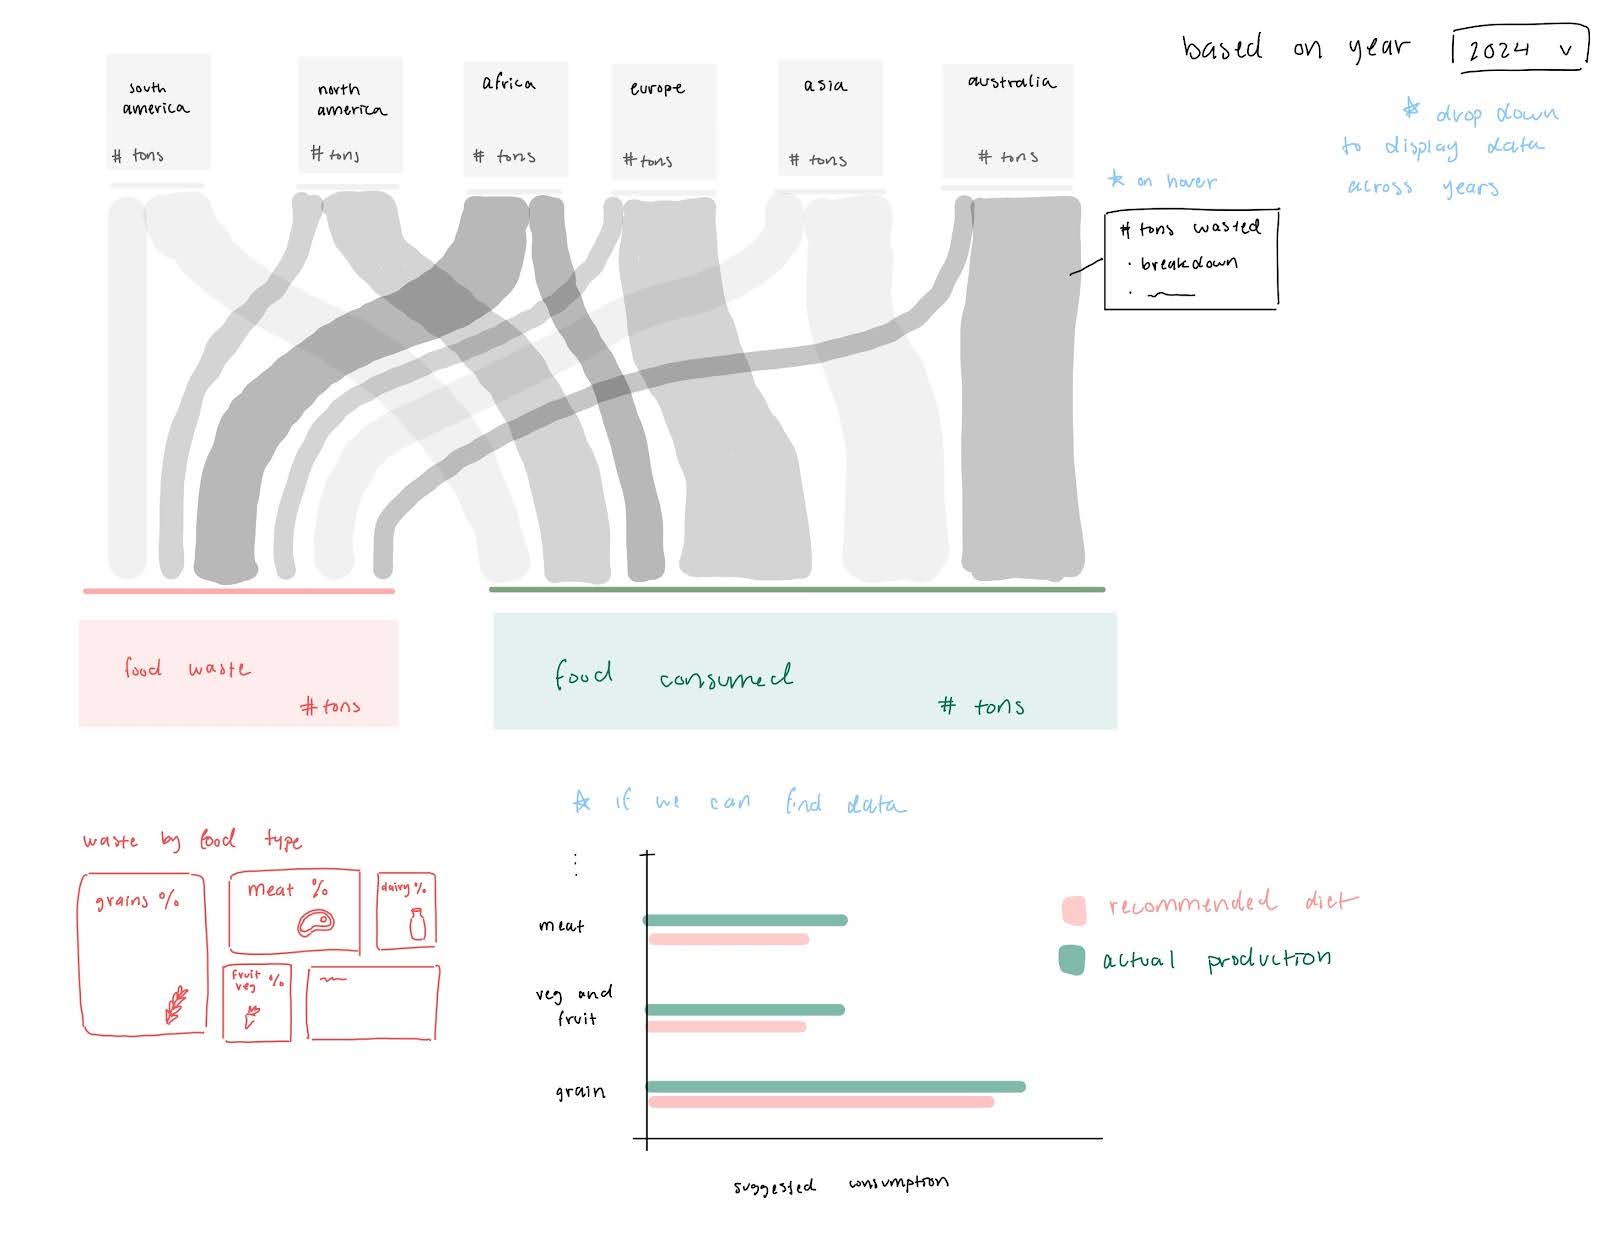 based on year 2024 v
* drop down
to display data
across years
south
america
# tons
north
america
# tons
africa
# tons
europe
# tons
asia
# tons
australia
# tons
* on hover
# tons wasted
· breakdown
food waste
# tons
food consumed
# tons
* if we can find data
waste by food type
grains %
meat %
dairy %
fruit
veg %
meat
veg and
fruit
grain
suggested consumption
recommended diet
actual production